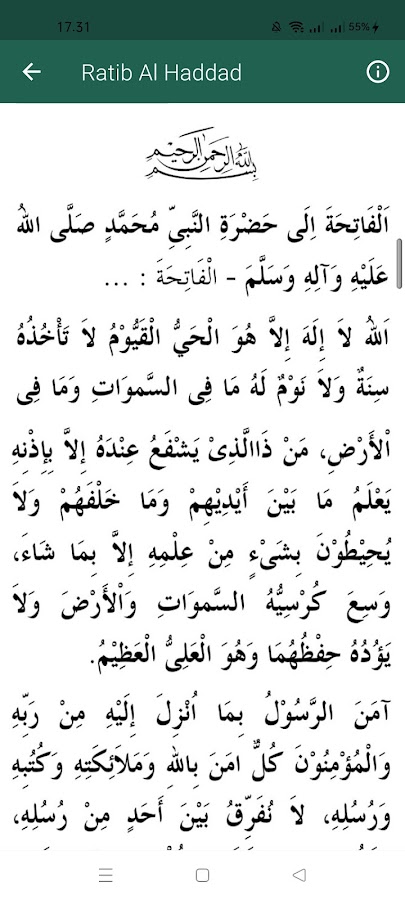 17.31
55%
Ratib Al Haddad
بسم الله الرحمن الرحيم
اَلْفَاتِحَةَ اِلَى حَضْرَةِ النَّبِيِّ مُحَمَّدٍ صَلَّى اللهُ
عَلَيْهِ وَآلِهِ وَسَلَّمَ - الْفَاتِحَةَ : ...
اَللهُ لاَ إِلَهَ إِلاَّ هُوَ الْحَيُّ الْقَيُّوْمُ لاَ تَأْخُذُهُ
سِنَةٌ وَلاَ نَوْمٌ لَهُ مَا فِى السَّموَاتِ وَمَا فِى
اْلأَرْضِ، مَنْ ذَاالَّذِىْ يَشْفَعُ عِنْدَهُ إِلاَّ بِإِذْنِهِ
يَعْلَمُ مَا بَيْنَ أَيْدِيْهِمْ وَمَا خَلْفَهُمْ وَلاَ
يُحِيْطُوْنَ بِشَىْءٍ مِنْ عِلْمِهِ إِلاَّ بِمَا شَاءَ،
وَسِعَ كُرْسِيُّهُ السَّموَاتِ وَاْلأَرْضَ وَلاَ
يَؤُدُهُ حِفْظُهُمَا وَهُوَ الْعَلِىُّ الْعَظِيْمُ.
آمَنَ الرَّسُوْلُ بِمَا اُنْزِلَ إِلَيْهِ مِنْ رَبِّهِ
وَالْمُؤْمِنُوْنَ كُلٌّ امَنَ بِاللهِ وَمَلاَئِكَتِهِ وَكُتُبِهِ
وَرُسُلِهِ، لاَ نُفَرِّقُ بَيْنَ أَحَدٍ مِنْ رُسُلِهِ،